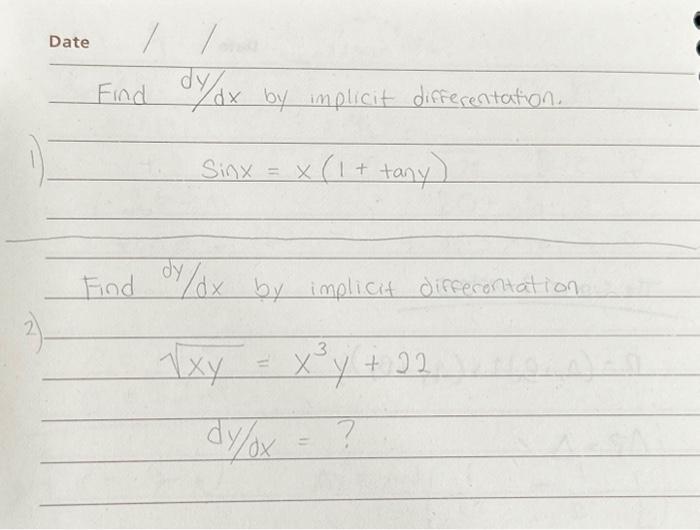 Date / /
Find dy/dx by implicit differentation.
1) Sinx = x (1 + tany)
Find dy/dx by implicit differentation
2) √xy = x³y + 22
dy/dx = ?